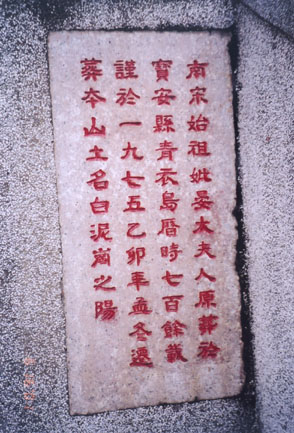 南宋始祖妣晏太夫人原葬於
寶安縣青衣島曆時七百餘載
謹於一九七五乙卯年孟冬遷
葬本山土名白泥崗之陽